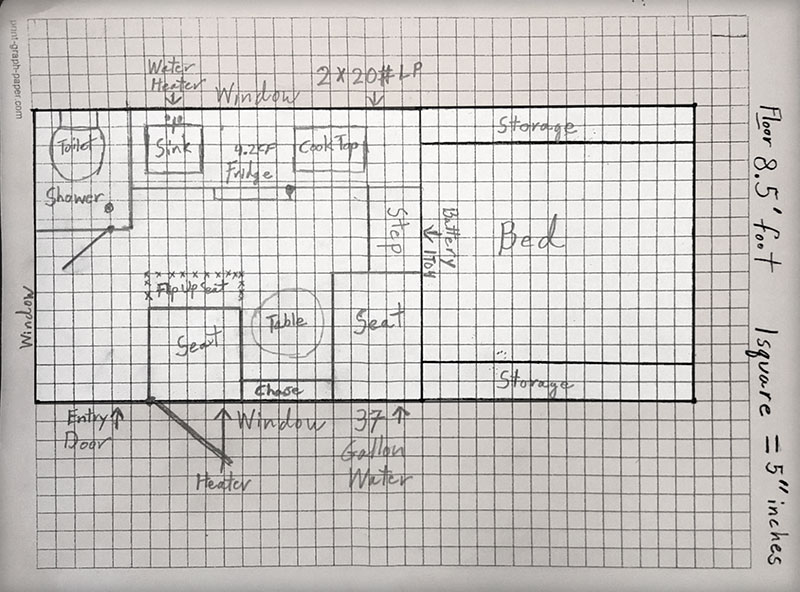 print-graph-paper.com
Water
Heater
Window
2 x 20# LP
Toilet
Sink
4.2CF
Fridge
Cook Top
Storage
Shower
Step
Battery
Bed
Flip Up Seat
Seat
Table
Seat
Window
Chase
Storage
Entry
Door
Window
37
Gallon
Water
Heater
Floor 8.5' foot
1 square = 5" inches